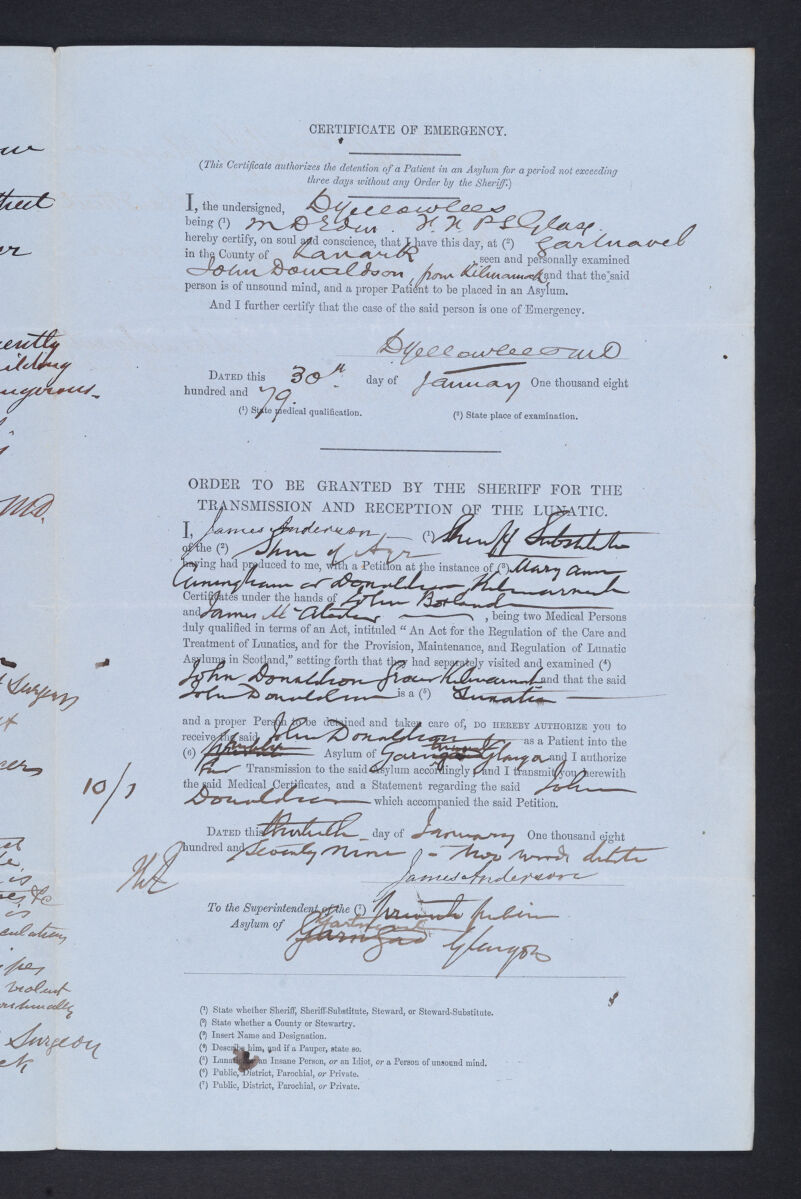 CERTIFICATE OF EMERGENCY.
(This Certificate authorizes the detention of a Patient in an Asylum for a period not exceeding
three days without any Order by the Sheriff.)
I, the undersigned, D Yellowlees
being (1) M D Edin. F. F. P S Glasg.
hereby certify, on soul and conscience, that I have this day, at (2) Gartnavel
in the County of Lanark , seen and personally examined
John Donaldson, from Kilmarnock, and that the said
person is of unsound mind, and a proper Patient to be placed in an Asylum.
And I further certify that the case of the said person is one of Emergency.
D Yellowlees MD
DATED this 30th day of January One thousand eight
hundred and 79.
(1) State medical qualification. (2) State place of examination.
ORDER TO BE GRANTED BY THE SHERIFF FOR THE
TRANSMISSION AND RECEPTION OF THE LUNATIC.
I, James Anderson (1) Sheriff Substitute
of the (2) Shire of Ayr
having had produced to me, with a Petition at the instance of (3) Mary Ann
Cuningham or Donaldson Kilmarnock
Certificates under the hands of John Borland
and James Mc Alester , being two Medical Persons
duly qualified in terms of an Act, intituled "An Act for the Regulation of the Care and
Treatment of Lunatics, and for the Provision, Maintenance, and Regulation of Lunatic
Asylums in Scotland," setting forth that they had separately visited and examined (4)
John Donaldson from Kilmarnock and that the said
John Donaldson is a (5) Lunatic
and a proper Person to be detained and taken care of, DO HEREBY AUTHORIZE you to
receive the said John Donaldson as a Patient into the
(6) Asylum of Glasgow and I authorize
Transmission to the said Asylum accordingly; and I transmit you herewith
the said Medical Certificates, and a Statement regarding the said John
Donaldson which accompanied the said Petition.
10/1
DATED this thirtieth day of January One thousand eight
hundred and Seventy Nine - two words delete
James Anderson
To the Superintendent of the (7) private
Asylum of Gartnavel Garngad Glasgow
(1) State whether Sheriff, Sheriff-Substitute, Steward, or Steward-Substitute.
(2) State whether a County or Stewartry.
(3) Insert Name and Designation.
(4) Describe him, and if a Pauper, state so.
(5) Lunatic, or an Insane Person, or an Idiot, or a Person of unsound mind.
(6) Public, District, Parochial, or Private.
(7) Public, District, Parochial, or Private.
M.D.
Surgeon
violent
Surgeon